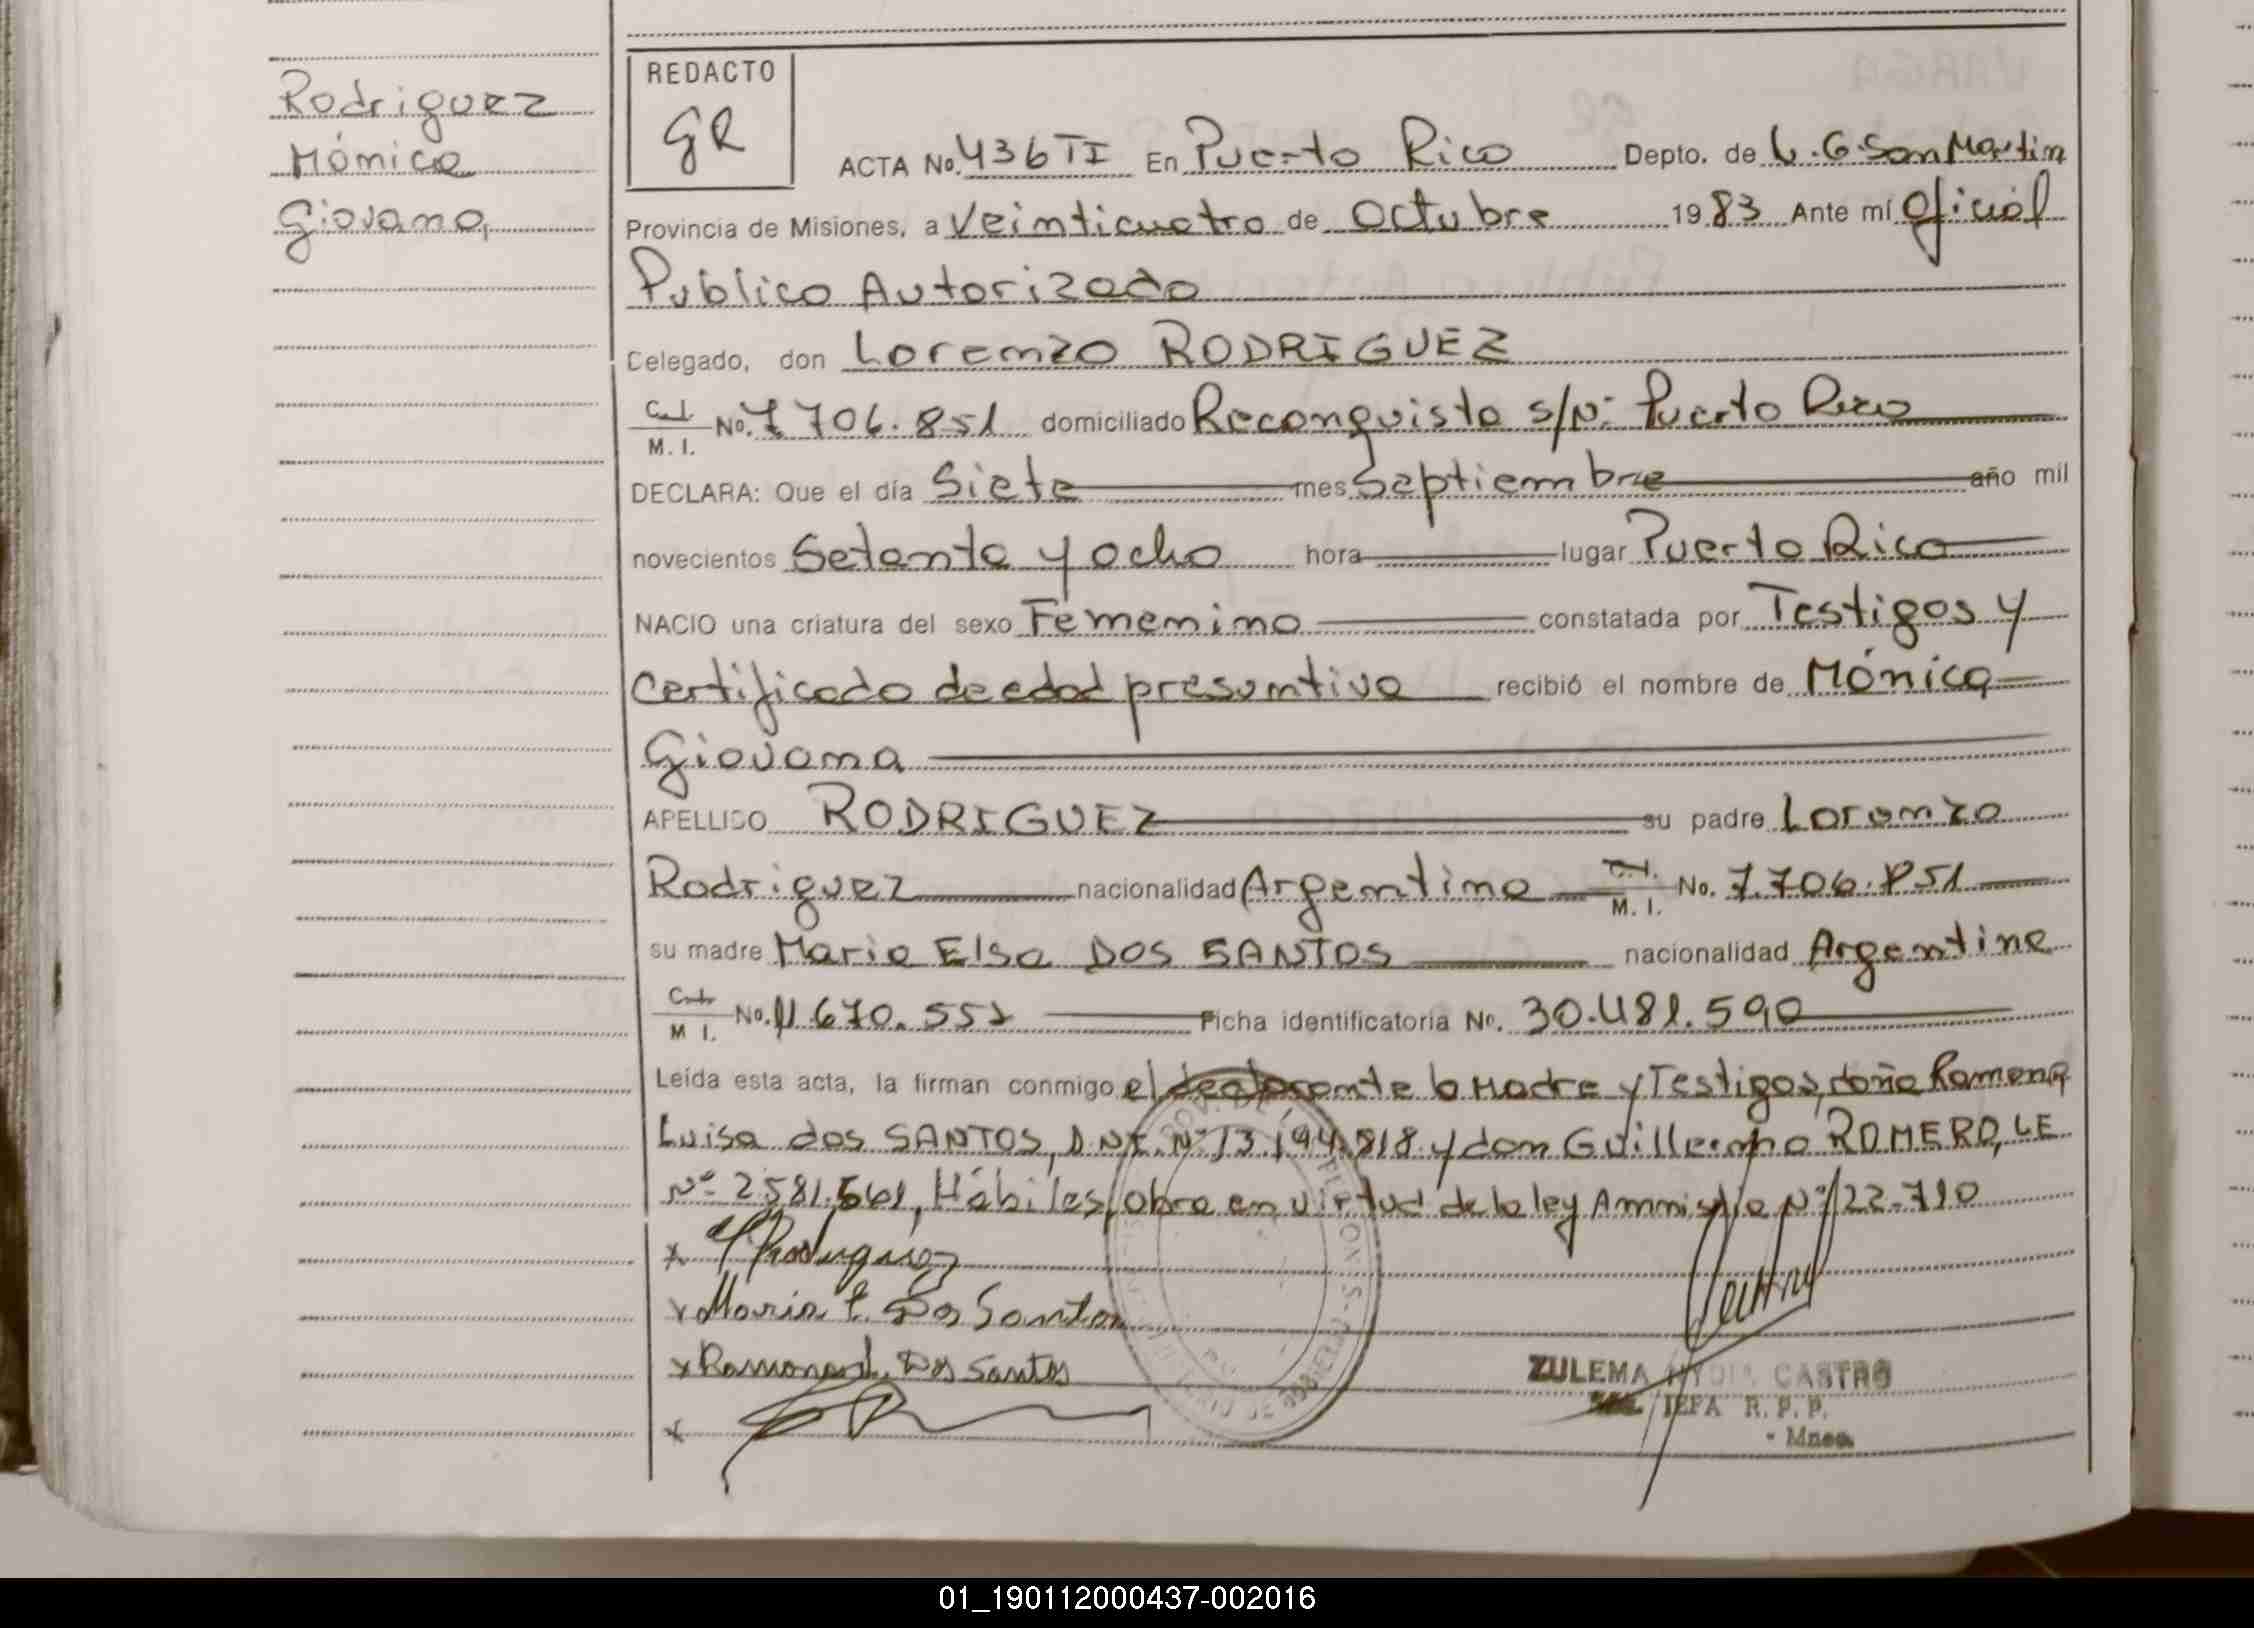 Rodriguez
Mónica
Giovana,
REDACTO
GR
ACTA No. 436 TI En Puerto Rico Depto. de L.G. San Martin
Provincia de Misiones, a Veinticuatro de Octubre 1983 Ante mí Oficial
Publico Autorizado
Delegado, don Lorenzo RODRIGUEZ
C.I. / M.I. No. 7706.851 domiciliado Reconquista s/Nº Puerto Rico
DECLARA: Que el día Siete mes Septiembre año mil
novecientos Setenta y ocho hora lugar Puerto Rico
NACIO una criatura del sexo Femenino constatada por Testigos y
Certificado de edad presuntiva recibió el nombre de Mónica
Giovana
APELLIDO RODRIGUEZ su padre Lorenzo
Rodriguez nacionalidad Argentino C.I. / M.I. No. 7.706.851
su madre Maria Elsa DOS SANTOS nacionalidad Argentina
C.I. / M I. No. 11.670.557 Ficha identificatoria No. 30.481.590
Leída esta acta, la firman conmigo el declarante la Madre y Testigos, doña Ramona
Luisa dos SANTOS, D.N.I. Nº 13.194.818 y don Guillermo ROMERO, LE
Nº 2581.561, Hábiles, obra en virtud de la ley Amnistia Nº 22.710
x Rodriguez
x Maria E. Dos Santos
x Ramona L. Dos Santos
x
ZULEMA NYDIA CASTRO
JEFA R. P. P.
- Mnes.
01_190112000437-002016